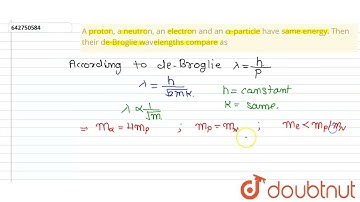 642750584
A proton, a neutron, an electron and an α-particle have same energy. Then
their de-Broglie wavelengths compare as
According to de-Broglie λ = h/P
λ = h/√2mK
h = constant
K = same.
λ ∝ 1/√m
= mα = 4mp ; mp = mn ; me < mp/mn
doubtnut